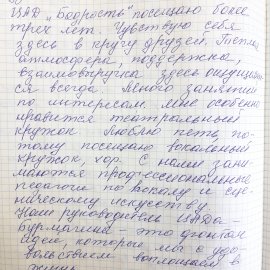 ЦАД „Бодрость" посещаю более
трех лет. Чувствую себя
здесь в кругу друзей. Теплая
атмосфера, поддержка,
взаимовыручка здесь ощущает
ся всегда. Много занятий
по интересам. Мне особенно
нравится театральный
кружок. Люблю петь, по-
этому посещаю вокальный
кружок, хор. С нами зани-
маются профессиональные
педагоги по вокалу и сце-
ническому искусству.
Наш руководитель
Бурмагина - это фонтан
идей, которые мы с удо-
вольствием воплощаем в
жизнь.